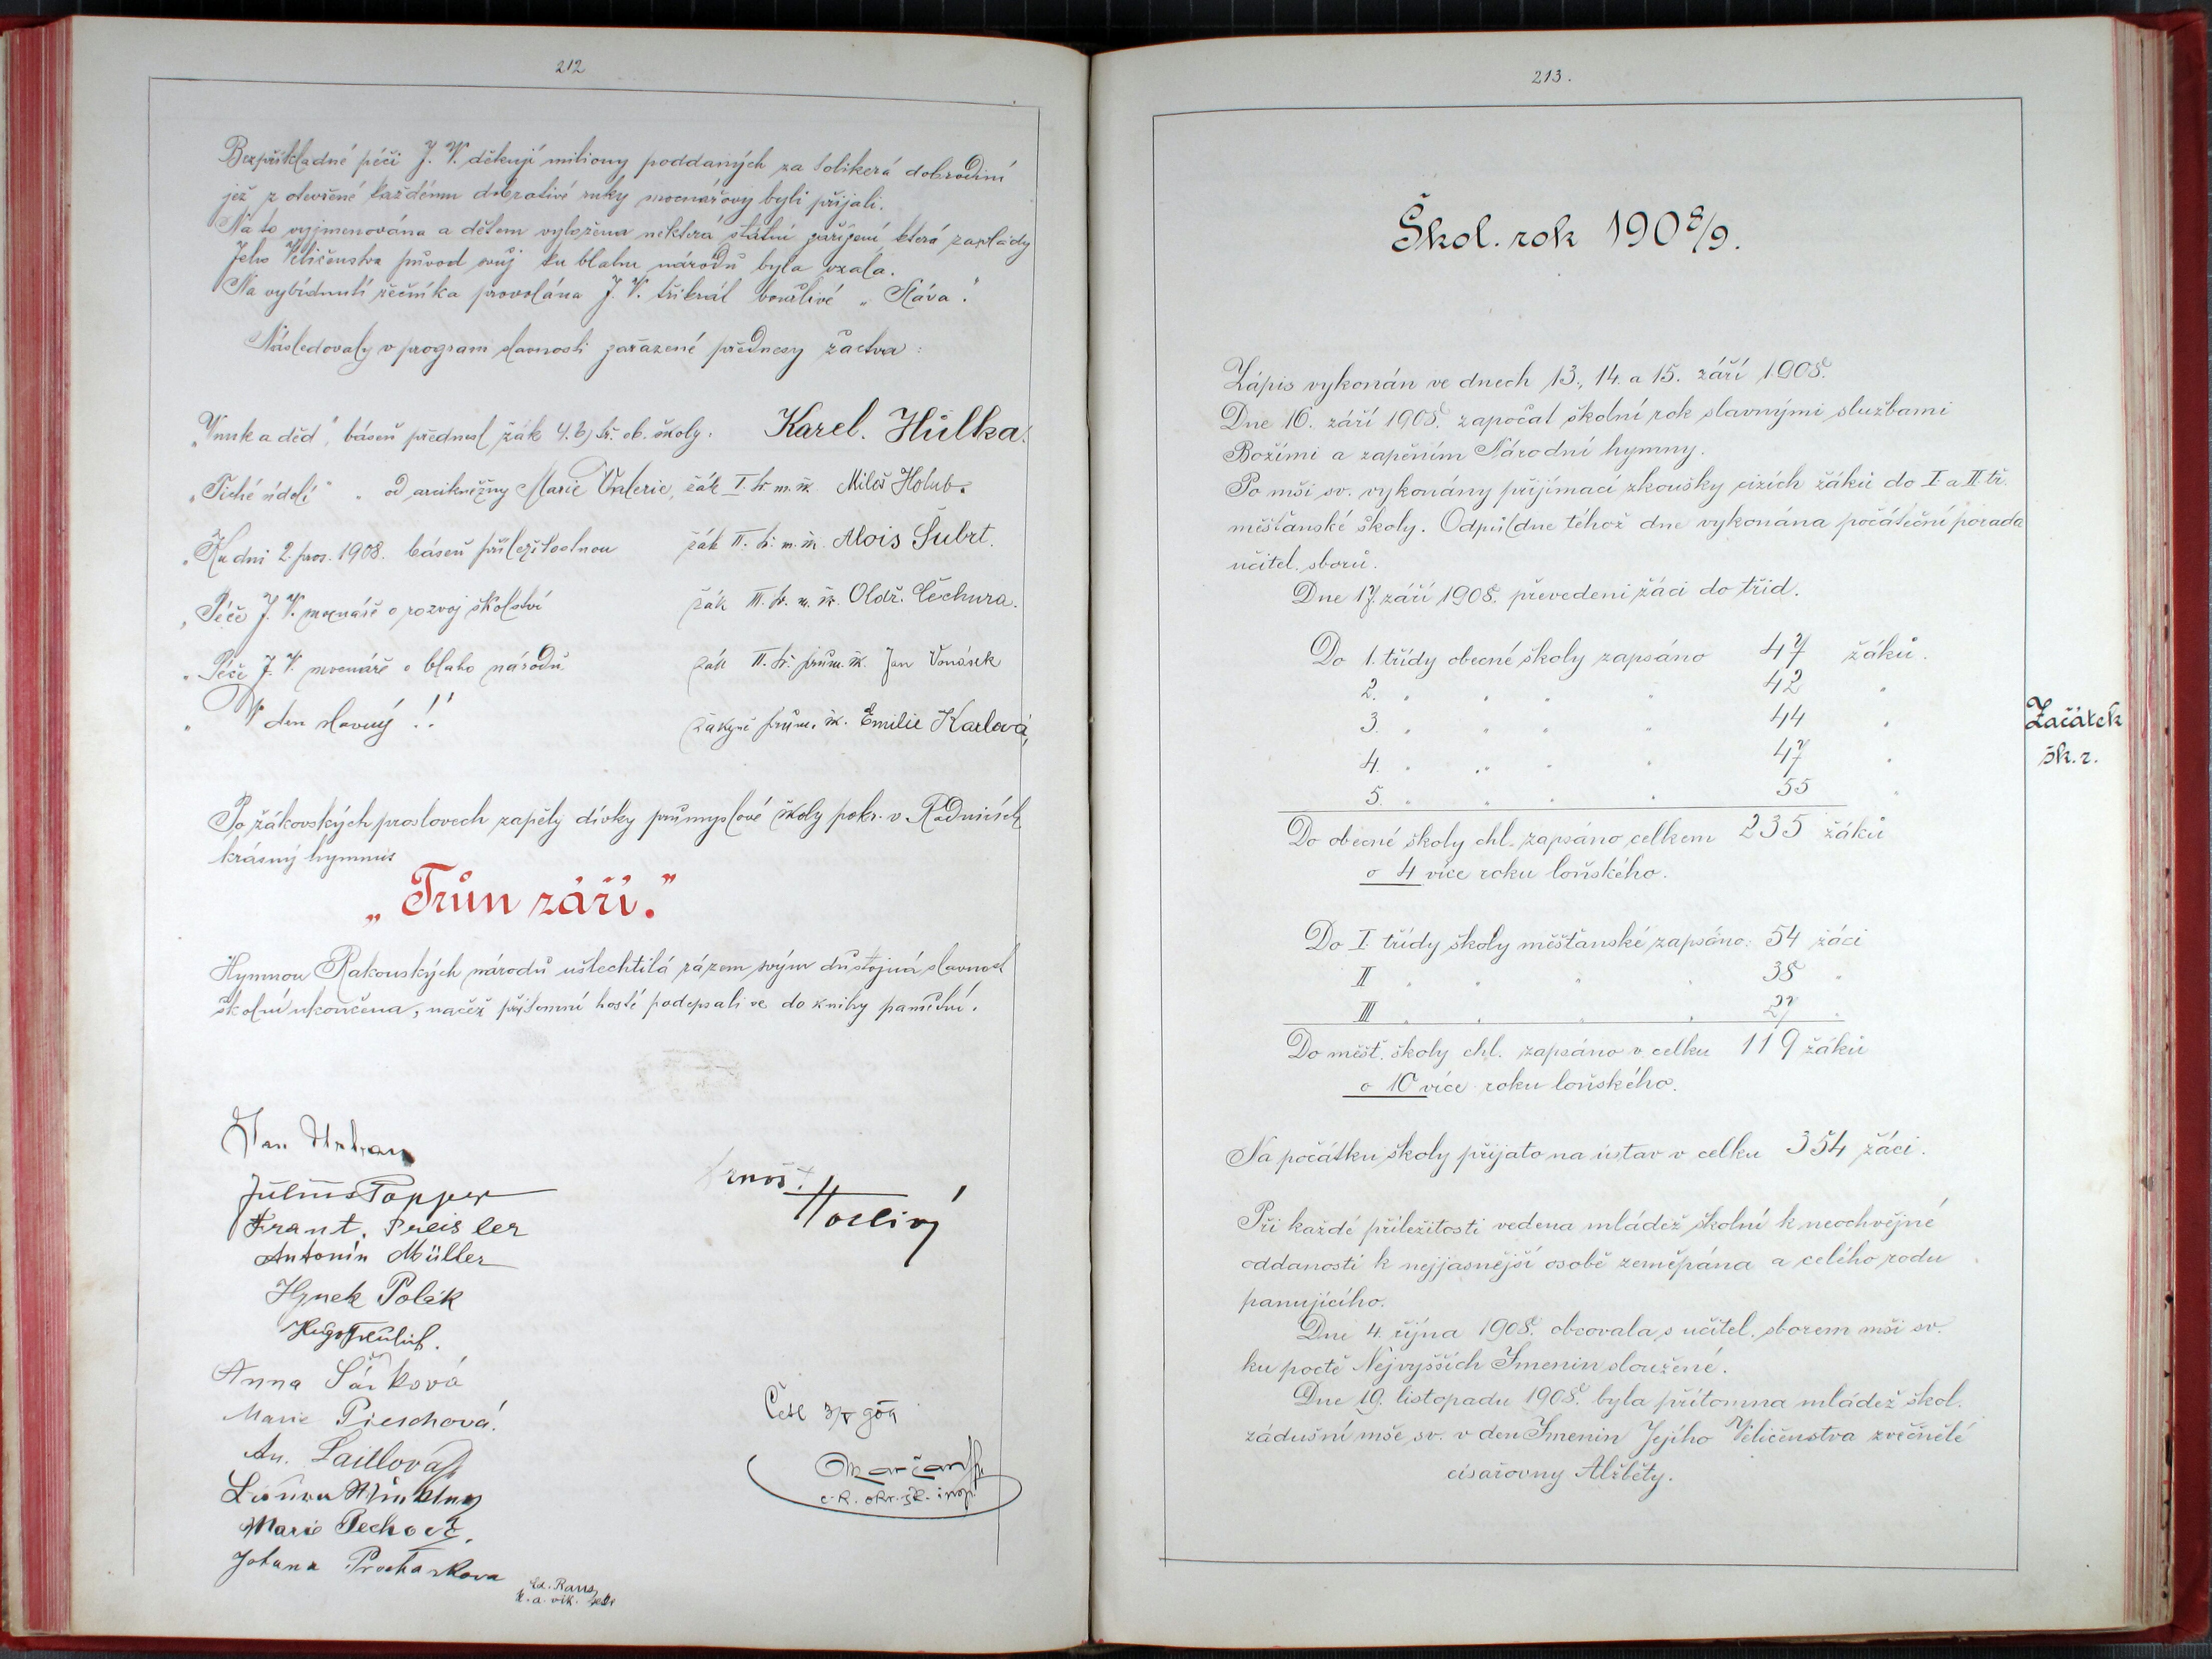 212
Bezpříkladné péči J. V. děkují miliony poddaných za tolikerá dobrodiní
jež z otevřené každému dobrotivé ruky mocnářovy byli přijali.
Na to vyjmenována a dětem vyložena některá státní zařízení, která za vlády
Jeho Veličenstva původ svůj ku blahu národů byla vzala.
Na vybídnutí řečníka provolána J. V. třikrát bouřlivé „Sláva."
Následovaly v program slavnosti zařazené přednesy žactva:
„Vnuk a děd", báseň přednesl žák 4. b) tř. ob. školy: Karel. Hůlka.
„Tiché údolí" „ od arcikněžny Marie Valerie, žák I. tř. m. šk. Miloš Holub.
„Ku dni 2. pros. 1908. báseň příležitostnou žák II. tř. m. šk. Alois Šubrt.
„Péče J. V. mocnáře o rozvoj školství žák III. tř. m. šk. Oldř. Čechura.
„Péče J. V. mocnáře o blaho národů žák II. tř. prům. šk. Jan Vonásek
„V den slavný!! žákyně prům. šk. Emilie Karlová,
Po žákovských proslovech zapěly dívky průmyslové školy pokr. v Radnicích
krásný hymnus
„Trůn září."
Hymnou Rakouských národů ušlechtilá rázem svým důstojná slavnost
školní ukončena, načež přítomní hosté podepsali se do knihy pamětní.
Jan Urban
Julius Popper
Arnošt Horlivý
Frant. Preisler
Antonín Müller
Hynek Polák
Anna
Marie Pieschová.
Četl 3/V 909
An. Laillová
c. k. okr. šk. insp.
Marie
Johana Procháskova
Ed. Raus
213.
Škol. rok 1908/9.
Zápis vykonán ve dnech 13., 14. a 15. září 1908.
Dne 16. září 1908. započal školní rok slavnými službami
Božími a zapěním Národní hymny.
Po mši sv. vykonány přijímací zkoušky cizích žáků do I a II tř.
měšťanské školy. Odpůldne téhož dne vykonána počáteční porada
učitel. sborů.
Dne 17. září 1908. převedeni žáci do tříd.
Do 1. třídy obecné školy zapsáno 47 žáků.
2. „ „ „ „ 42 „
3. „ „ „ „ 44 „
4. „ „ „ „ 47 „
5. „ „ „ „ 55 „
Začátek
šk. r.
Do obecné školy chl. zapsáno celkem 235 žáků
o 4 více roku loňského.
Do I. třídy školy měšťanské zapsáno: 54 žáci
II „ „ „ „ 38 „
III „ „ „ „ 27 „
Do měšť. školy chl. zapsáno v celku 119 žáků
o 10 více roku loňského.
Na počátku školy přijato na ústav v celku 354 žáci.
Při každé příležitosti vedena mládež školní k neochvějné
oddanosti k nejjasnější osobě zeměpána a celého rodu
panujícího.
Dne 4. října 1908. obcovala s učitel. sborem mši sv.
ku poctě Nejvyšších Jmenin sloužené.
Dne 19. listopadu 1908. byla přítomna mládež škol.
zádušní mše sv. v den Jmenin Jejího Veličenstva zvěčnělé
císařovny Alžběty.